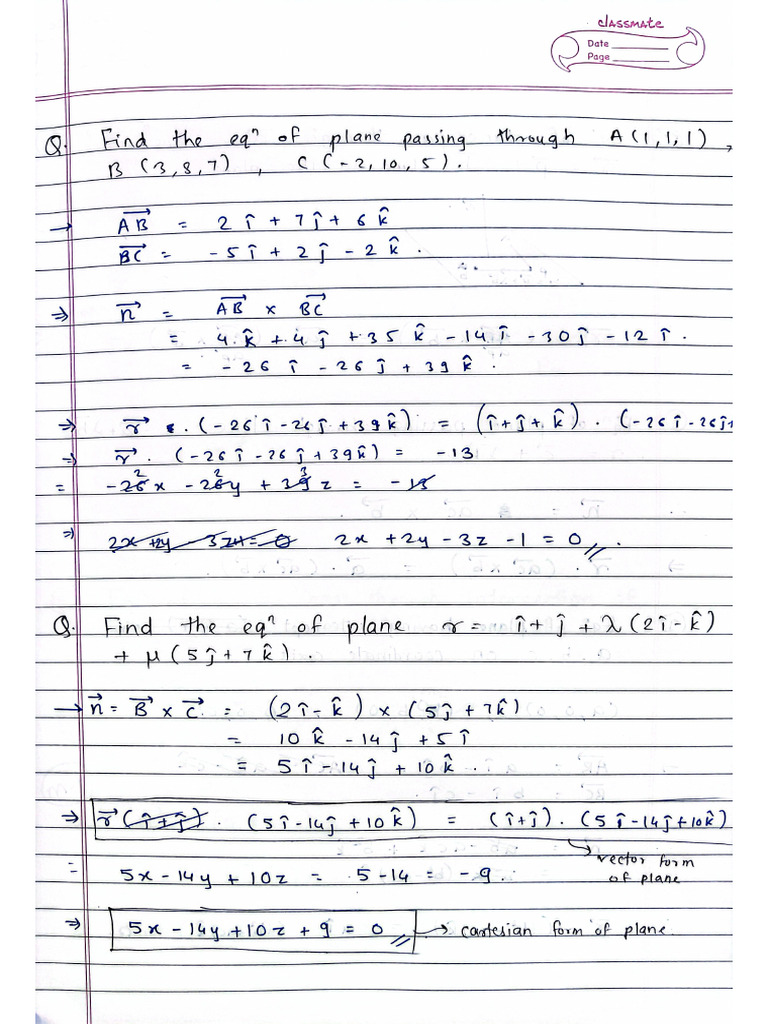 classmate
Date
Page
Q. Find the eqⁿ of plane passing through A(1,1,1),
B (3,8,7) , C (-2,10,5).
→ AB⃗ = 2 î + 7 ĵ + 6 k̂
BC⃗ = -5 î + 2 ĵ - 2 k̂ .
⇒ n⃗ = AB⃗ × BC⃗
= 4 k̂ + 4 ĵ + 35 k̂ - 14 î - 30 ĵ - 12 î .
= - 26 î - 26 ĵ + 39 k̂ .
⇒ r⃗ . (-26 î - 26 ĵ + 39 k̂) = (î + ĵ + k̂) . (-26 î - 26 ĵ +
⇒ r⃗ . (-26 î - 26 ĵ + 39 k̂) = -13
= -26x - 26y + 39z = -13
2 2 3
⇒ 2x + 2y - 3z + = 0 2x + 2y - 3z - 1 = 0 .
Q. Find the eqⁿ of plane r = î + ĵ + λ (2î - k̂)
+ μ (5ĵ + 7k̂) .
→ n⃗ = B⃗ × C⃗ = (2î - k̂) × (5ĵ + 7k̂)
= 10 k̂ - 14 ĵ + 5 î
= 5 î - 14 ĵ + 10 k̂ .
⇒ r⃗ (î + ĵ) . (5 î - 14 ĵ + 10 k̂) = (î + ĵ) . (5 î - 14 ĵ + 10 k̂)
vector form
of plane
= 5x - 14y + 10z = 5 - 14 = -9 .
⇒ 5x - 14y + 10z + 9 = 0 → cartesian form of plane.